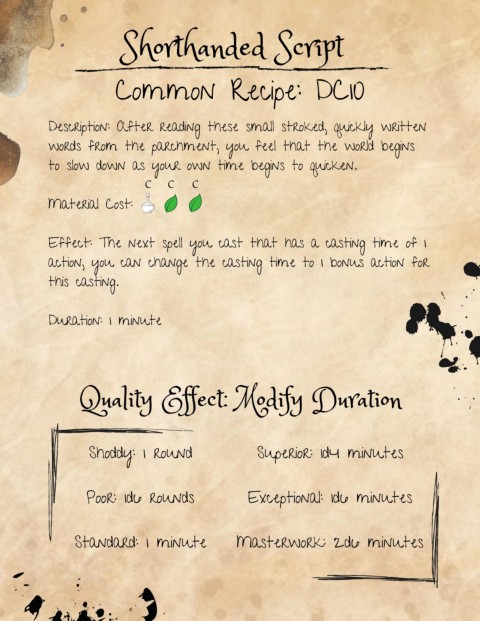 Shorthanded Script
Common Recipe: DC10
Description: After reading these small stroked, quickly written
words from the parchment, you feel that the world begins
to slow down as your own time begins to quicken.
C C C
Material Cost:
Effect: The next spell you cast that has a casting time of 1
action, you can change the casting time to 1 bonus action for
this casting.
Duration: 1 minute
Quality Effect: Modify Duration
Shoddy: 1 round
Superior: 1d4 minutes
Poor: 1d6 rounds
Exceptional: 1d6 minutes
Standard: 1 minute
Masterwork: 2d6 minutes